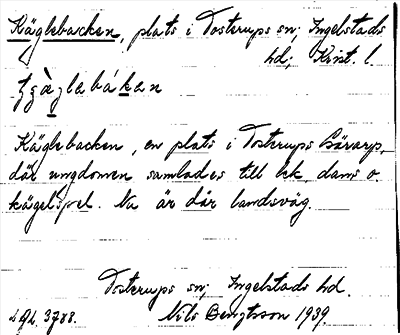 Käglebacken, plats i Tosterups sn; Ingelstads
hd; Krist. l.
Käglebacken, en plats i Tosterups Gärarp,
där ungdomen samlades till lek dans o
kägelspel. Nu är där landsväg.
Tosterups sn; Ingelstads hd.
Nils Bengtsson 1939.